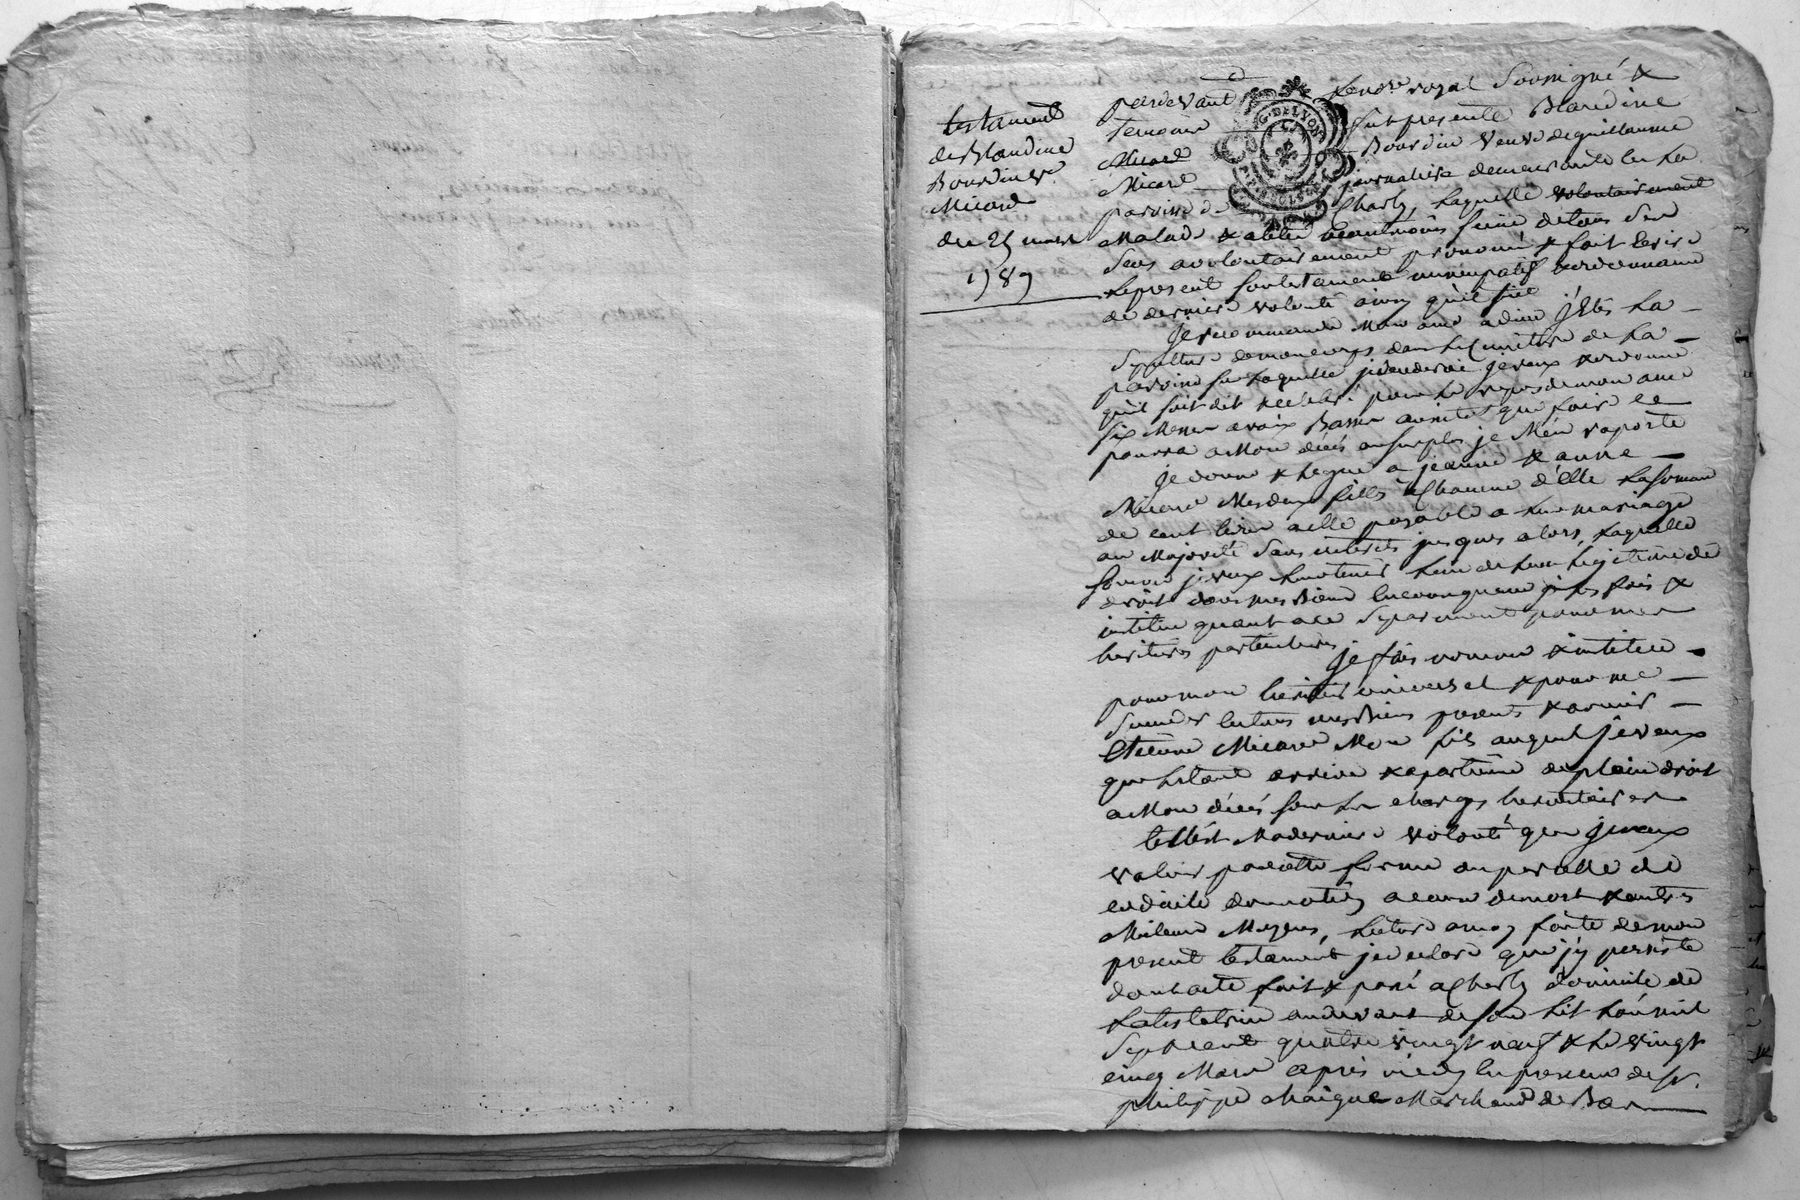 testament
de Blandine
Bourdin ve
Micard
du 25 mars
1789
pardevant le no.re royal soussigné &
temoins fut presente Blandine
Bourdin veuve de guillaume
Micard journalier demeurante en la
paroisse de Charly, laquelle volontairement
malade & alitée neantmoins saine de tous ses
sens a volontairement prononcé & fait ecrire
le present son testament nuncupatif & ordonnance
de derniere volonté ainsy qu'il suit
je recommande mon ame a dieu j'élis la
sepulture de mon corps dans le cimetiere de la
paroisse sur laquelle je décederai je veux & ordonne
qu'il soit dit & celebré pour le repos de mon ame
six messes a voix basse aussitot que faire ce
pourra a mon décés au surplus je m'en raporte
je donne & legue a jeanne & anne
Micard mes deux filles a chacune d'elle la somme
de cent livres a elle payable a leur mariage
ou majorité sans interets jusques alors, laquelle
somme je veux leur tenir lieu de leur legitime de
droit dans mes biens en consequence je les fais &
institue quant a ce separement pour mes
heritieres particulieres
je fais nomme & institue
pour mon heritier universel & pour me
succeder en tous mes biens presents & avenir
Etienne Micard mon fils auquel je veux
que le tout arrive & apartienne de plein droit
a mon décés sous les charges hereditaires
telle est ma derniere volonté que je veux
valoir par cette forme ou par celle de
codicile donnation a cause de mort & autres
meilleurs moyens, lecture a moy faite de mon
present testament je declare que j'y persiste
dont acte fait & passé a Charly domicile de
la testatrice au devant de son lit l'an mil
sept cent quatre vingt neuf & le vingt
cinq mars apres midy en presence de sr.
philippe Maigue marchand de Bas
G. DE LYON